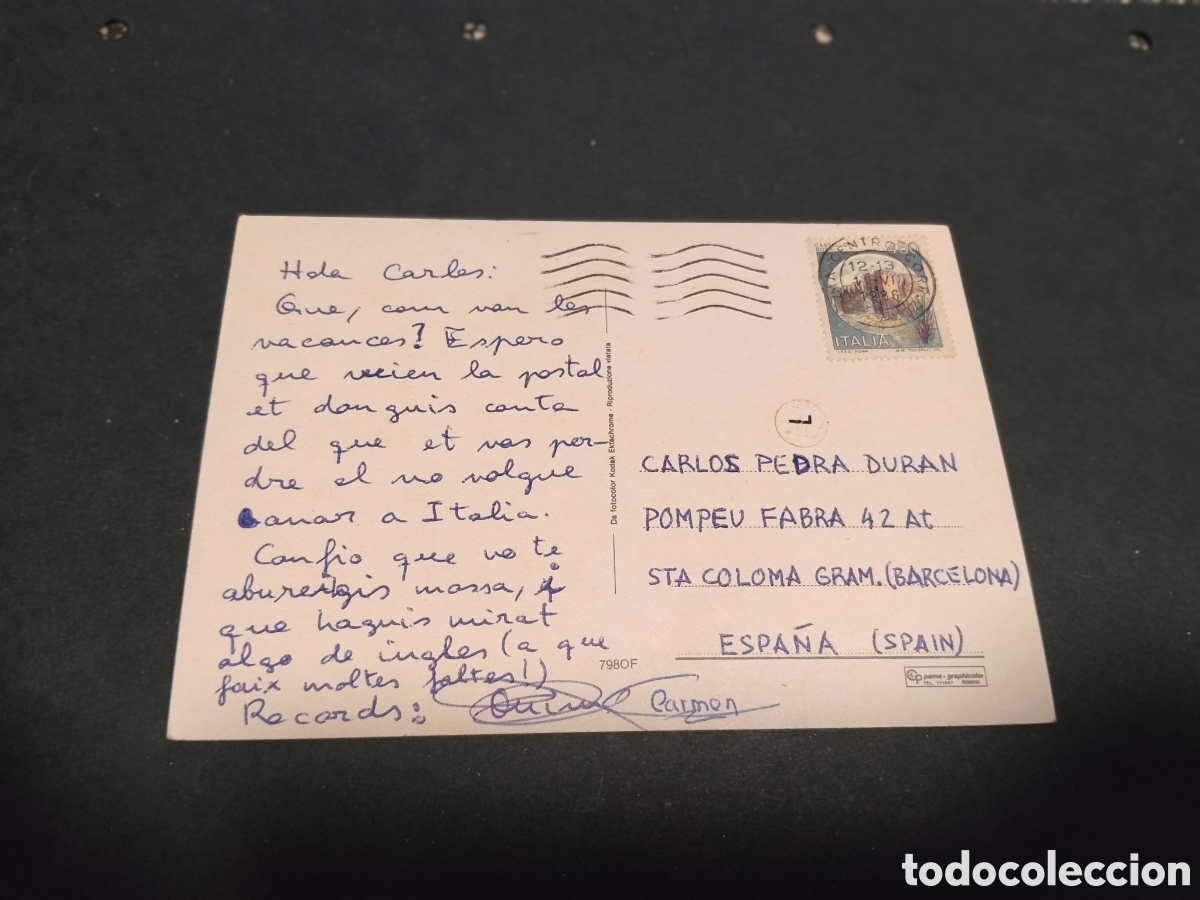 Hola Carles:
Que, com van les
vacances? Espero
que veien la postal
et donguis conta
del que et vas per-
dre al no volgue
anar a Italia.
Confio que no te
abureixis massa, i
que haguis mirat
algo de ingles (a que
faix moltes faltes!)
Records:
Carmen
798OF
Da fotocolor Kodak Ektachrome - Riproduzione vietata
250
12-13
ITALIA
L
CARLOS PEDRA DURAN
POMPEU FABRA 42 At
STA COLOMA GRAM. (BARCELONA)
ESPAÑA (SPAIN)
pama - graphicolor
todocoleccion